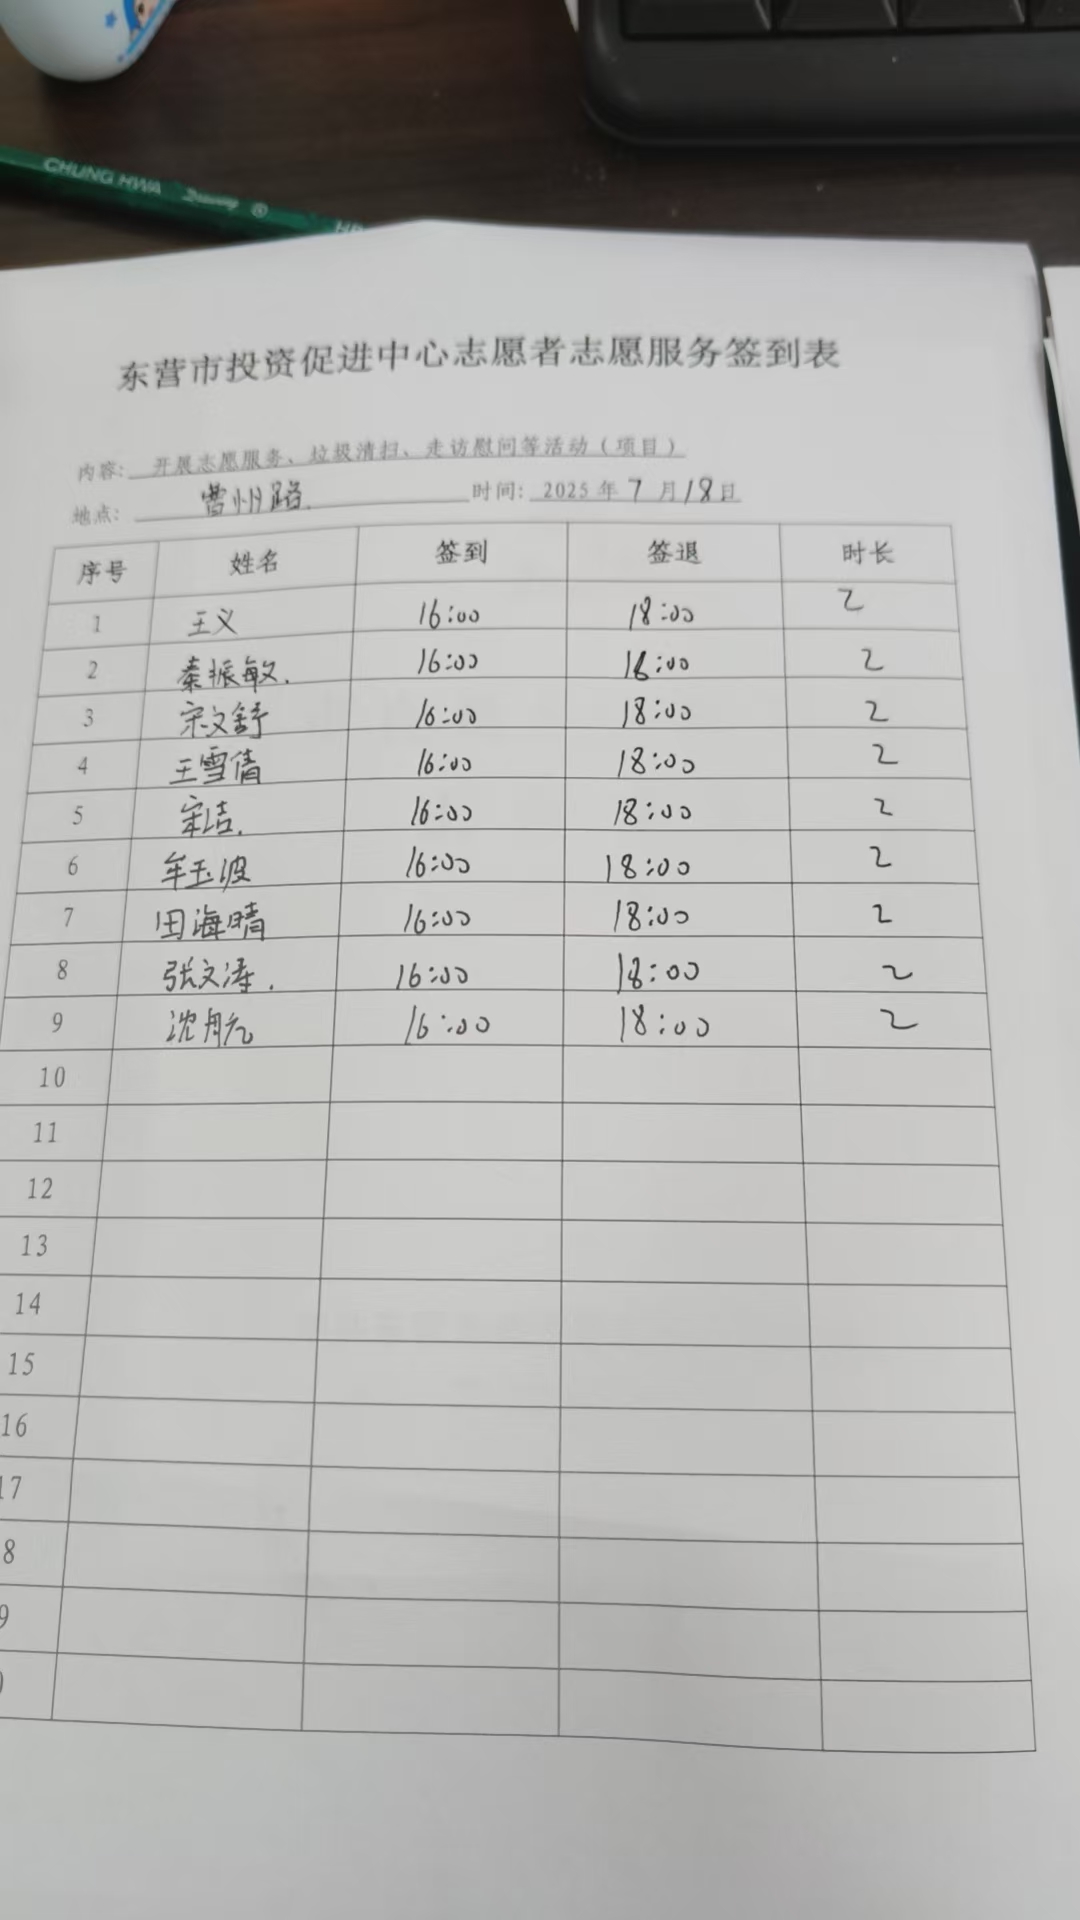 CHUNG HWA Drawing ® HB
东营市投资促进中心志愿者志愿服务签到表
内容: 开展志愿服务、垃圾清扫、走访慰问等活动（项目）
地点: 曹州路. 时间: 2025 年 7 月 18 日
序号 姓名 签到 签退 时长
1 王义 16:00 18:00 2
2 秦振敏. 16:00 18:00 2
3 宋文舒 16:00 18:00 2
4 王雪倩 16:00 18:00 2
5 宋洁. 16:00 18:00 2
6 牟玉波 16:00 18:00 2
7 田海晴 16:00 18:00 2
8 张文涛. 16:00 18:00 2
9 沈月元 16:00 18:00 2
10
11
12
13
14
15
16
17
8
9